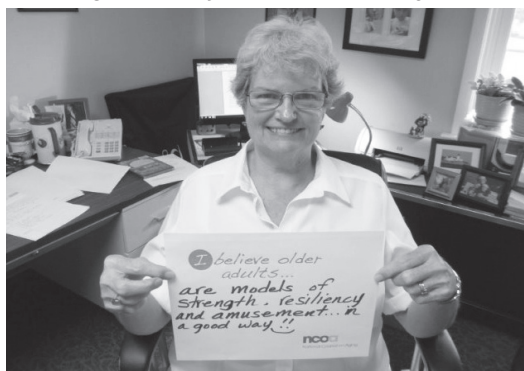 I believe older
adults...
are models of
strength, resiliency
and amusement... in
a good way!!
ncoa